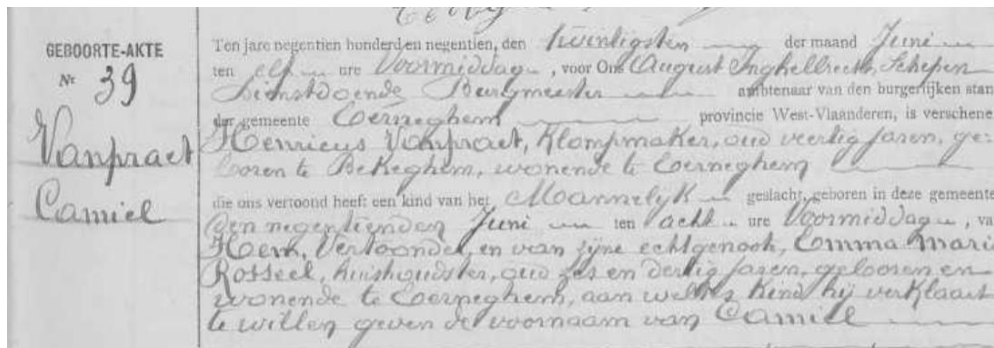 GEBOORTE-AKTE
Nr 39
Vanpraet
Camiel
Ten jare negentien honderd en negentien, den twintigsten der maand Juni
ten elf ure Voormiddag, voor Ons August Inghelbrecht, Schepen
Dienstdoende Burgmeester ambtenaar van den burgerlijken stan
der gemeente Eerneghem provincie West-Vlaanderen, is verschene
Henricus Vanpraet, Klompmaker, oud veertig jaren, ge-
boren te Bekeghem, wonende te Eerneghem
die ons vertoond heeft een kind van het Mannelijk geslacht, geboren in deze gemeente
den negentienden Juni ten acht ure Voormiddag, va
Hem, Vertooner, en van zijne echtgenoote, Emma Mari
Rosseel, huishoudster, oud zes en dertig jaren, geboren en
wonende te Eerneghem, aan welk kind hij verklaart
te willen geven de voornaam van Camiel